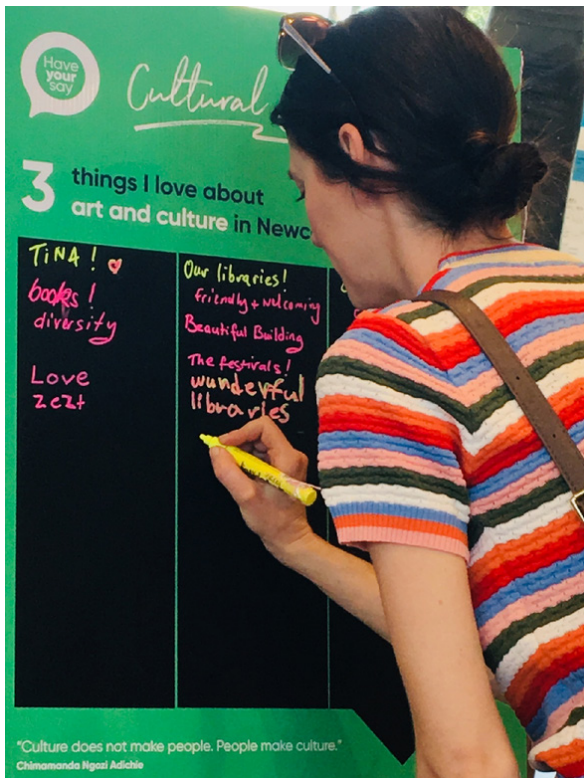 Have
your
say
Cultural
3
things I love about
art and culture in Newc
TiNA!
books!
diversity
Love
zezt
Our libraries!
friendly + welcoming
Beautiful Building
The festivals!
wunderful
libraries
"Culture does not make people. People make culture."
Chimamanda Ngozi Adichie